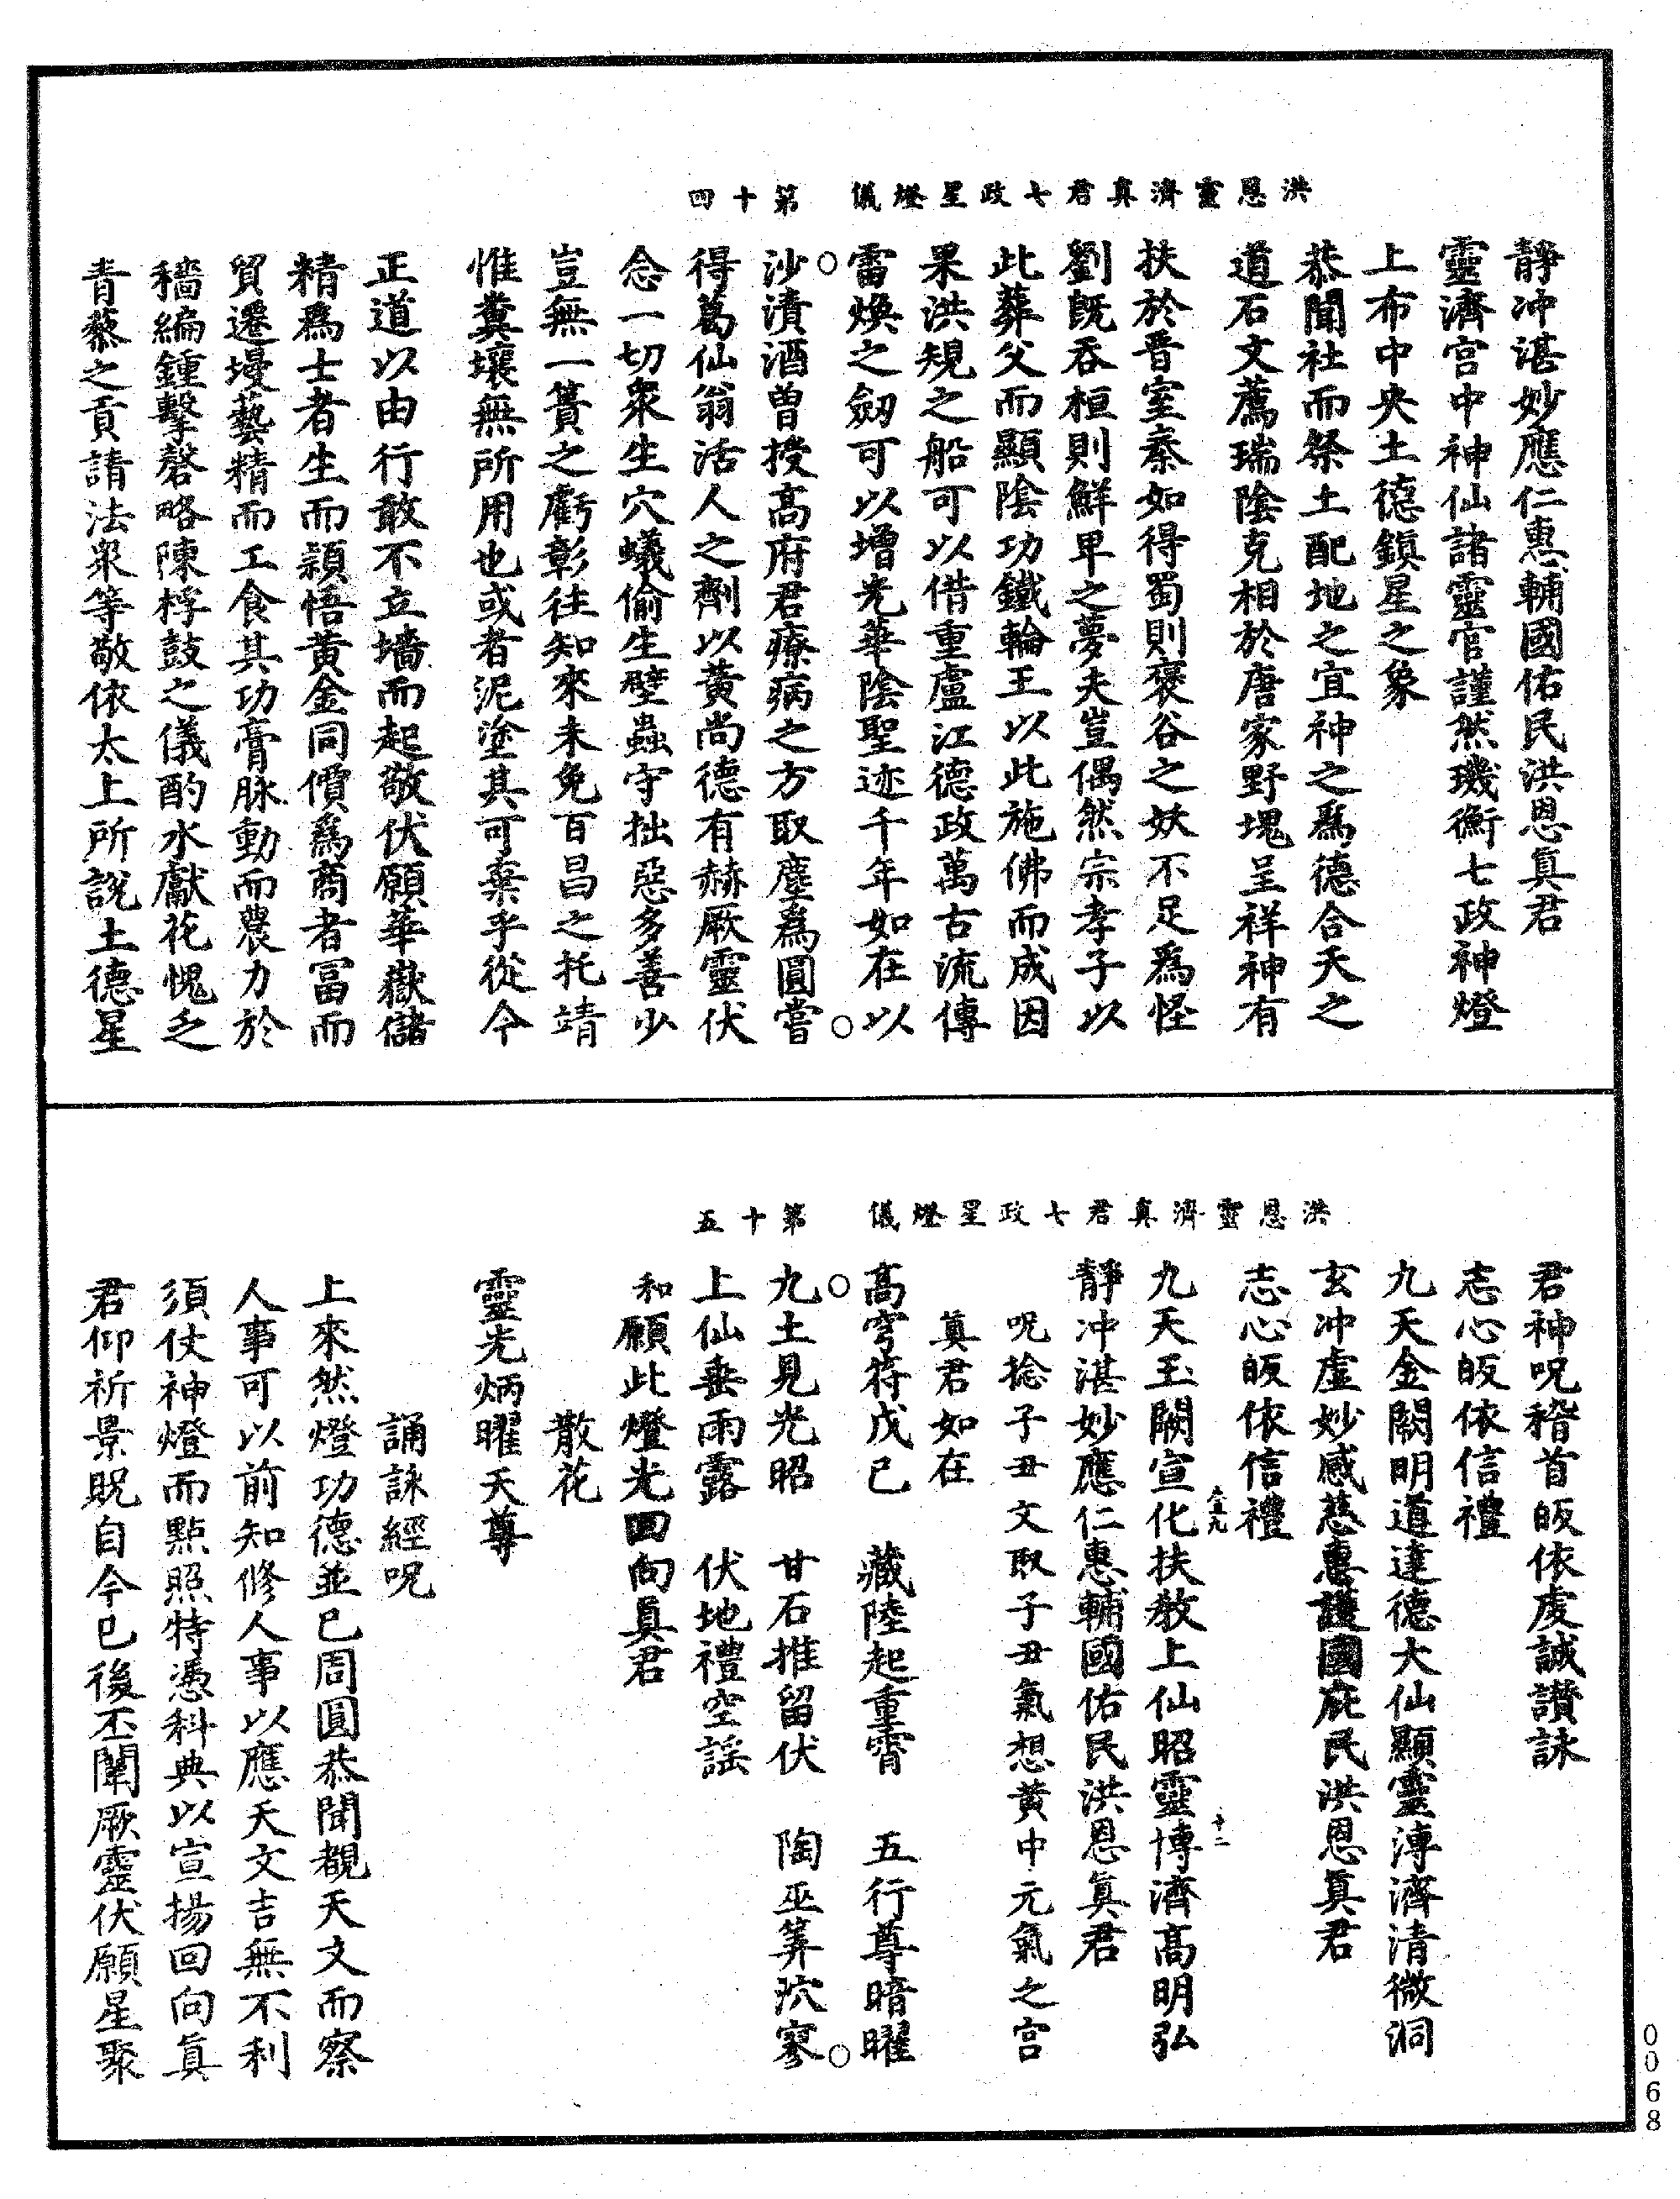 洪恩靈濟真君七政星燈儀　第十四
靜冲湛妙應仁惠輔國佑民洪恩真君
靈濟宫中神仙諸靈官謹然璣衡七政神燈
上布中央土德鎮星之象
恭聞社而祭土配地之宜神之爲德合天之
道石文薦瑞陰克相於唐家野塊呈祥神有
扶於晋室秦如得蜀則褒谷之妖不足爲怪
劉旣吞桓則鮮卑之夢夫豈偶然宗孝子以
此葬父而顯陰功鐵輪王以此施佛而成因
果洪規之船可以借重盧江德政萬古流傳
雷煥之劒可以增光華陰聖迹千年如在以
沙漬酒曽授高府君療病之方取塵爲圓嘗
得葛仙翁活人之劑以黃尚德有赫厥靈伏
念一切衆生穴蟻偷生壁蟲守拙惡多善少
豈無一簣之虧彰往知來未免百昌之托靖
惟糞壤無所用也或者泥塗其可棄乎從今
正道以由行敢不立墻而起敬伏願華嶽儲
精爲士者生而穎悟黃金同價爲商者冨而
貿遷墁藝精而工食其功膏脉動而農力於
穡編鍾擊磬略陳桴鼓之儀酌水獻花愧乏
青藜之貢請法衆等敬依太上所說土德星
洪恩靈濟真君七政星燈儀　第十五
君神呪稽首皈依虔誠讃詠
志心皈依信禮
九天金闕明道達德大仙顯靈溥濟清微洞
玄冲虛妙感慈惠護國庇民洪恩真君
志心皈依信禮
九天玉闕宣化扶教上仙昭靈博濟高明弘
靜冲湛妙應仁惠輔國佑民洪恩真君
呪捻子丑文取子丑氣想黃中元氣之宫
真君如在
高穹符戊己　藏陸起重霄　五行尊暗曜
九土見光昭　甘石推留伏　陶巫筭泬寥
上仙垂雨露　伏地禮空謡
和願此燈光回向真君
散花
靈光炳曜天尊
誦詠經呪
上來然燈功德並已周圓恭聞觀天文而察
人事可以前知修人事以應天文吉無不利
須仗神燈而點照特憑科典以宣揚回向真
君仰祈景貺自今已後丕闡厥靈伏願星聚
十二
0068